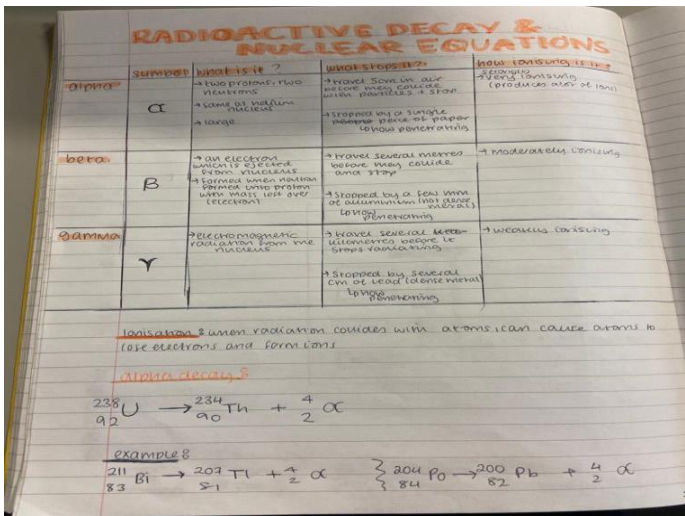 RADIOACTIVE DECAY &
NUCLEAR EQUATIONS
symbol
what is it?
what stops it?
how ionising is it?
alpha
α
→ two protons, two
neutrons
→ same as helium
nucleus
→ large
→ travel 5cm in air
before they collide
with particles + stop
→ stopped by a single
piece of paper
↳ how penetrating
→ very ionising
(produces a lot of ions)
beta
β
→ an electron
which is ejected
from nucleus
→ formed when neutron
formed into proton
with mass left over
(electron)
→ travel several metres
before they collide
and stop
→ stopped by a few mm
of aluminium (not dense
metal)
↳ how
penetrating
→ moderately ionising
gamma
γ
→ electromagnetic
radiation from the
nucleus
→ travel several
kilometres before it
stops radiating
→ stopped by several
cm of lead (dense metal)
↳ how
penetrating
→ weakly ionising
Ionisation: when radiation collides with atoms, can cause atoms to
lose electrons and form ions
alpha decay:
238 92 U → 234 90 Th + 4 2 α
example:
211 83 Bi → 207 81 Tl + 4 2 α } 204 84 Po → 200 82 Pb + 4 2 α